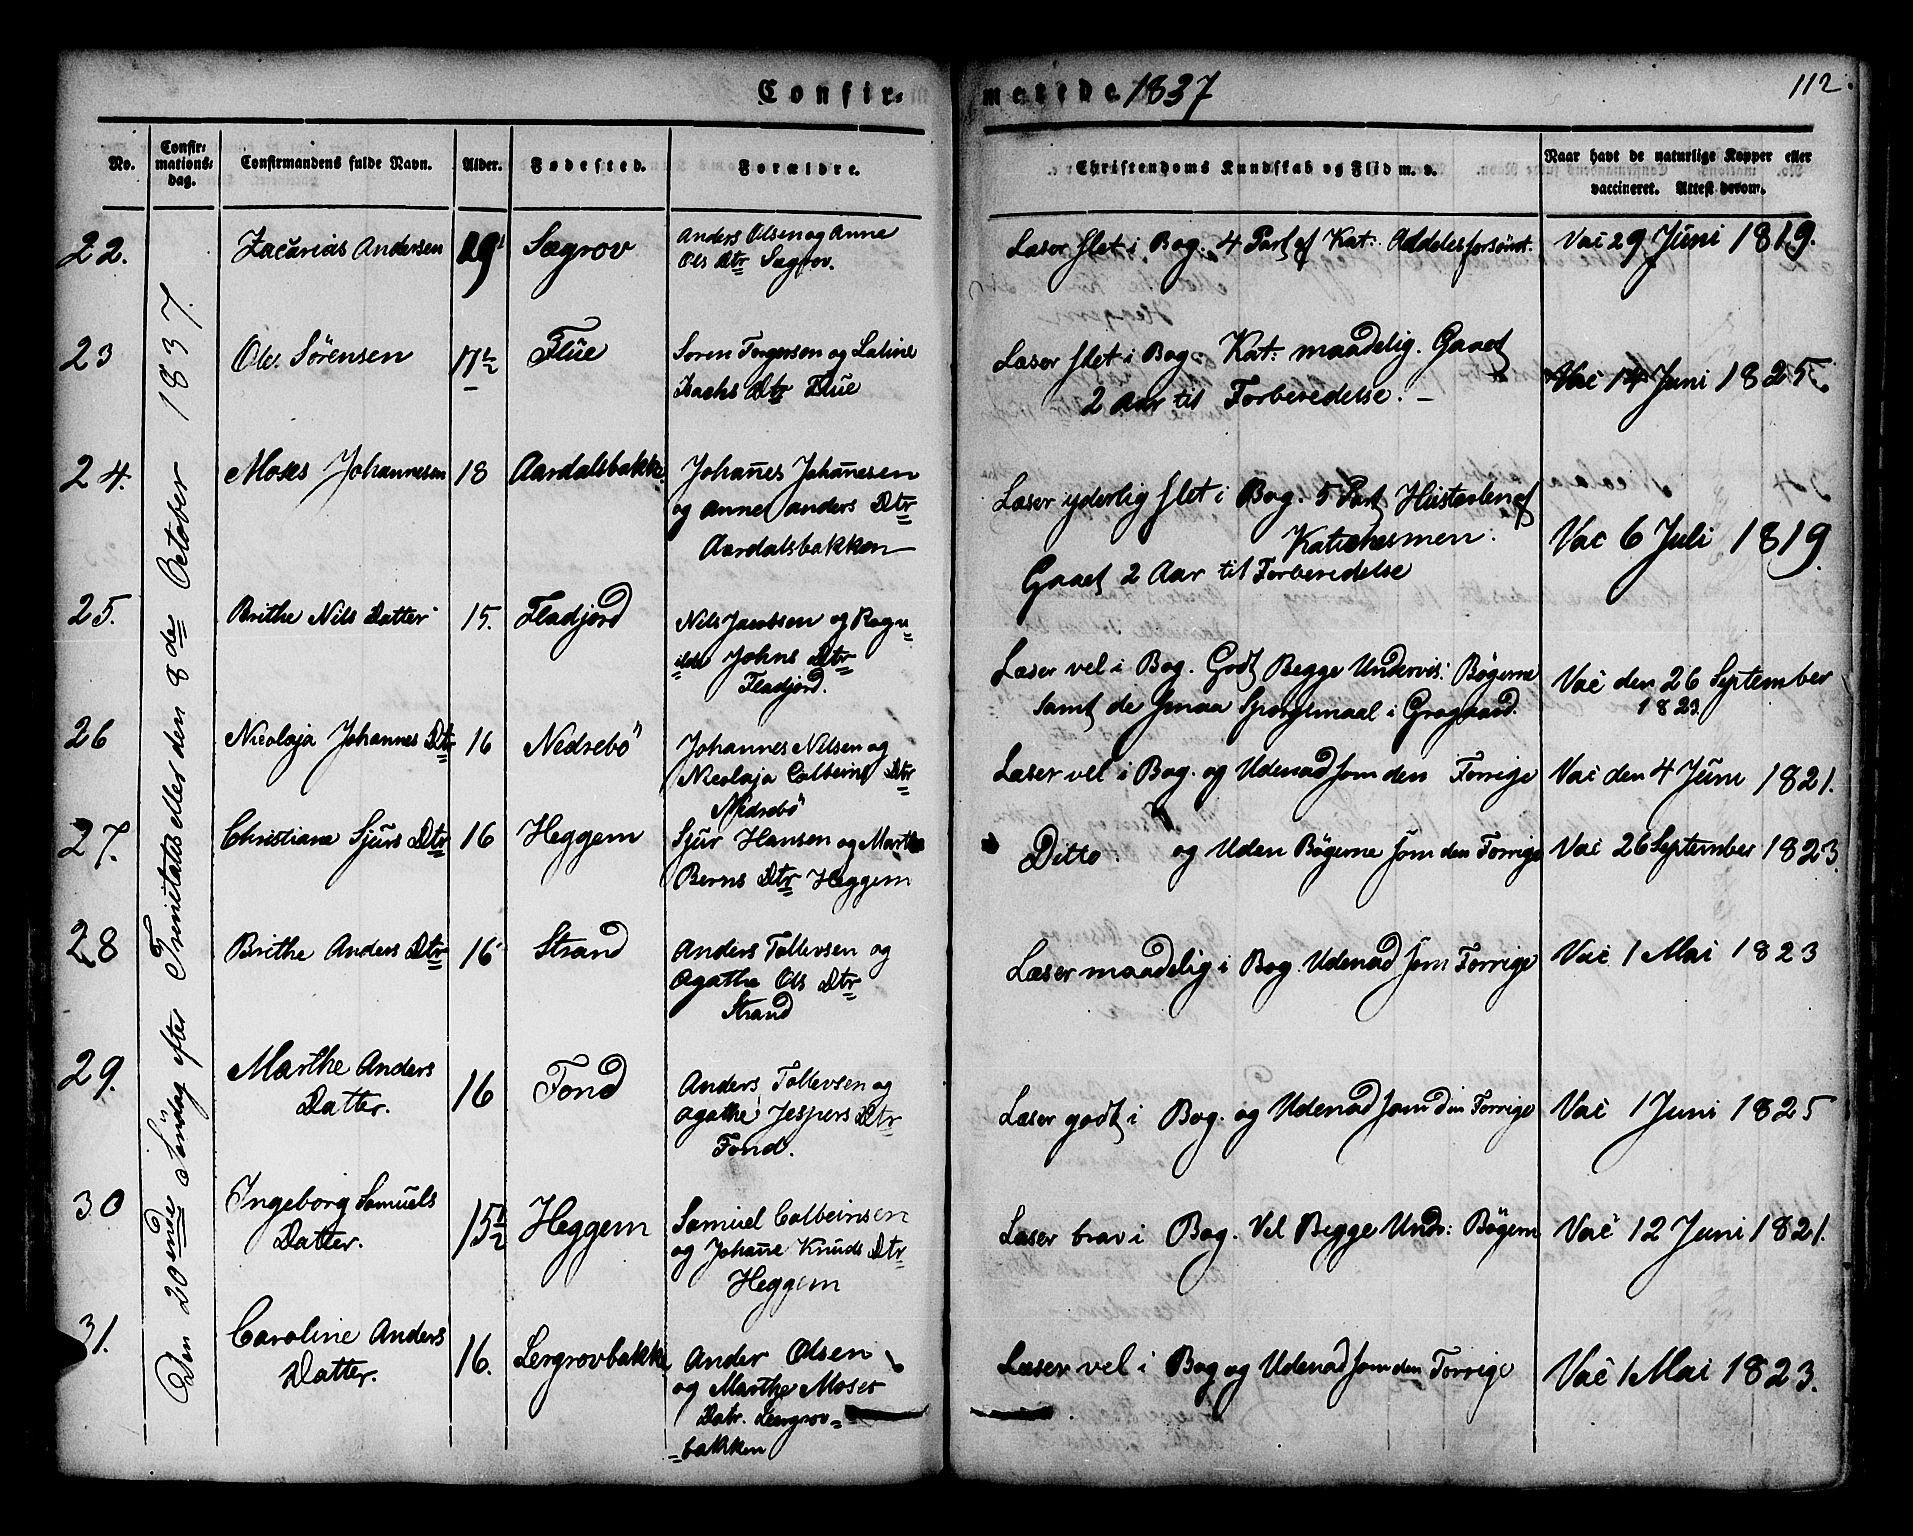 Confir-
merede 1837
112.
No.
Confir-
mations-
dag.
Confirmandens fulde Navn.
Alder.
Fødested.
Forældre.
Christendoms Kundskab og Flid m. v.
Naar havt de naturlige Kopper eller
vaccineret. Attest derom.
Den 20ende Søndag efter Trinietatis eller den 8de October 1837.
22.
Zacarias Andersen
19
Sægrov
Anders Olsen og Anne
Ols Dtr Sægrov.
Læser slet i Bog. 4 Part af Kat:
Vac 29 Juni 1819.
23
Ole Sörensen
17½
Flüe
Soren Torgersen og
Isachs Dtr Flüe
Læser slet i Bog. Kat: maadelig. Gaaet
2 Aar til Forberedelse. -
Vac 14 Juni 1825.
24.
Moses Johannesen
18
Aardalsbakke
Johan̄es Johan̄esen
og Anne Anders Dtr
Aardalsbakken
Læser yderlig slet i Bog. 5 Part Hüstavlen af
Katichesmen.
Gaaet 2 Aar til Forberedelse
Vac 6 Juli 1819.
25.
Brithe Nils Datter
15.
Fladjord
Nils Jacobsen og Ragn-
ilde Johns Dtr
Fladjord.
Læser vel i Bog. Godt Begge Undervis: Bøgerne
samt de smaa Spørgsmaal i Grøgaard.
Vac den 26 September
1823
26
Nicolaja Johannes Dtr
16
Nedrebö
Johannes Nilsen og
Nicolaja Colbeins Dtr
Nedrebö
Læser vel i Bog. og Udenad som den Forrige
Vac den 4 Juni 1821.
27.
Christiane Sjurs Dtr
16
Heggem
Sjur Hansen og Marthe
Berns Dtr Heggem
Ditto. og Uden Bøgerne som den Forrige
Vac 26 September 1823.
28
Brithe Anders Dtr
16
Strand
Anders Tollevsen og
Agathe Ols Dtr
Strand
Læser maadelig i Bog. Udenad som Forrige
Vac 1 Mai 1823
29.
Marthe Anders
Datter.
16
Fond
Anders Tollevsen og
Agathe Jespers Dtr
Fond.
Læser godt i Bog. og Udenad som den Forrige
Vac 1 Juni 1825
30
Ingeborg Samuels
Datter.
15½
Heggem
Samuel Colbeinsen
og Johan̄e Knuds Dtr
Heggem
Læser brav i Bog. Vel Begge Unds: Bøgern
Vac 12 Juni 1821.
31.
Caroline Anders
Datter.
16.
Lergrovbakke
Ander Olsen
og Marthe Moses
Datr. Lergrov-
-bakken
Læser vel i Bog og Udenad som den Forrige
Vac 1 Mai 1823.